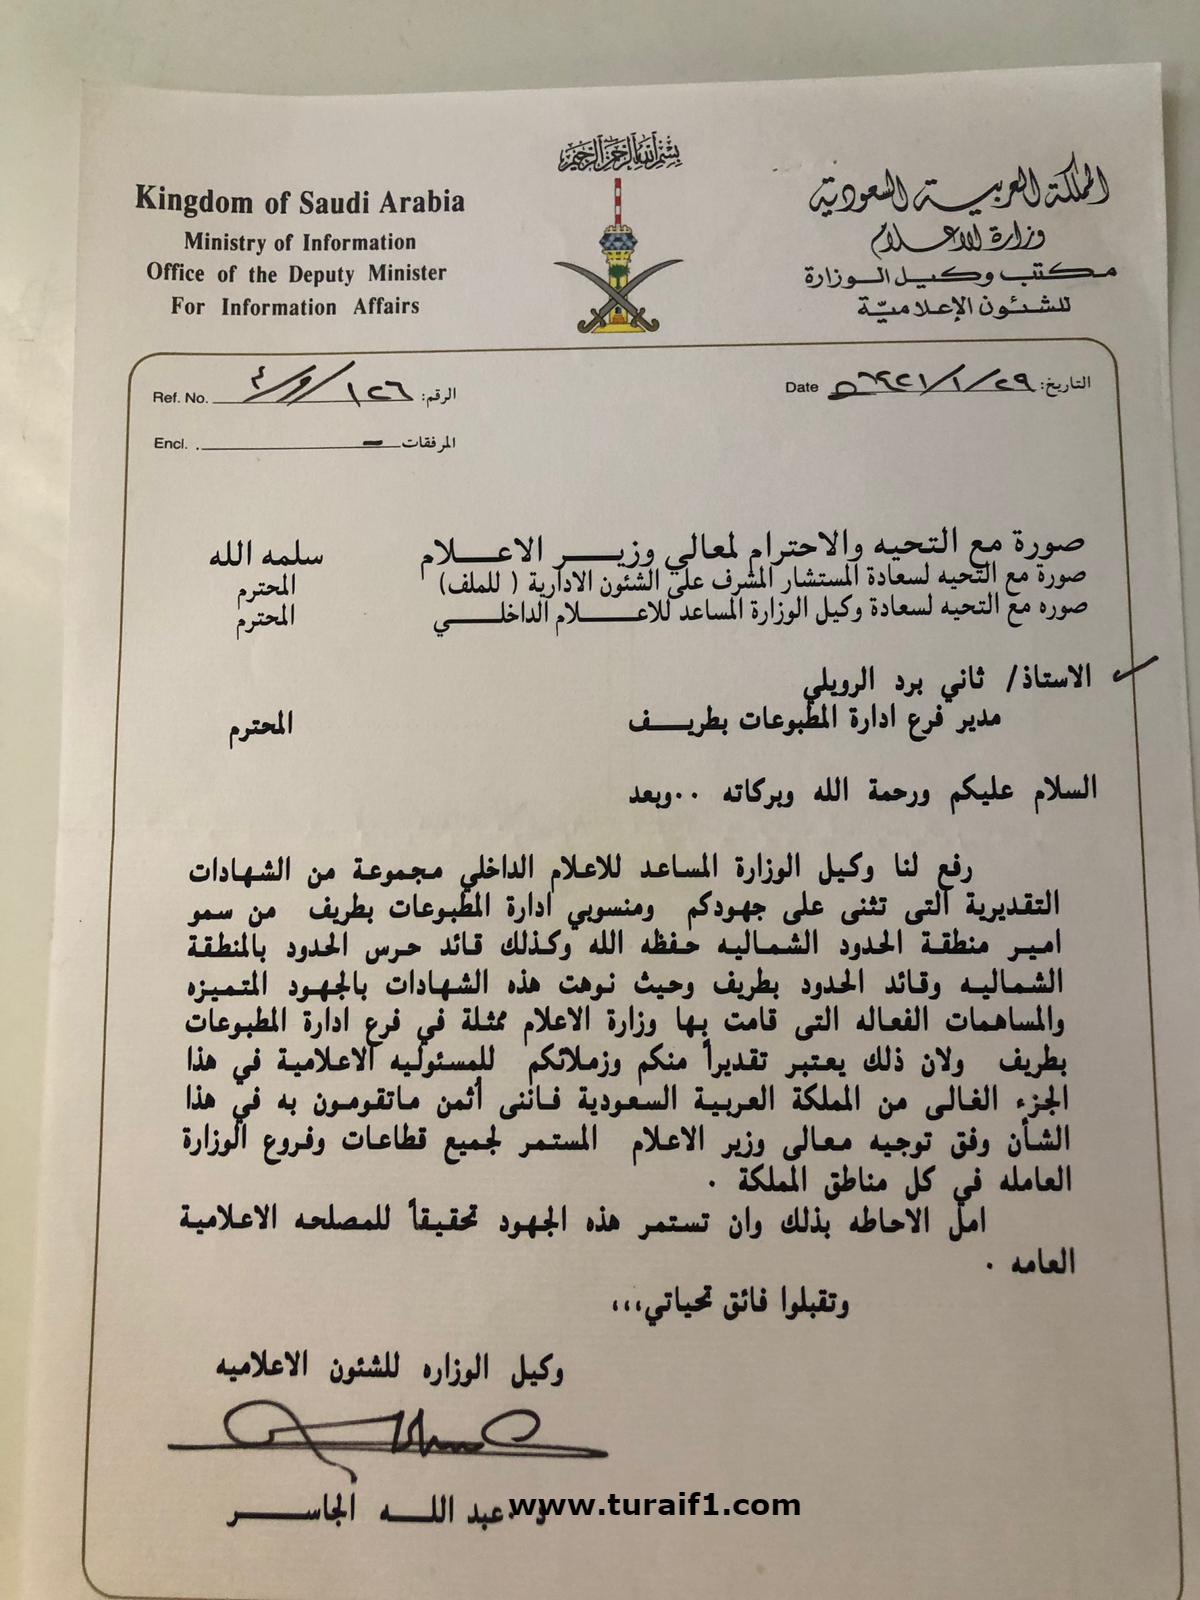 بسم الله الرحمن الرحيم
المملكة العربية السعودية
وزارة الاعلام
مكتب وكيل الوزارة
للشئون الإعلامية
Kingdom of Saudi Arabia
Ministry of Information
Office of the Deputy Minister
For Information Affairs
التاريخ: ٢٩/١/١٤٢١هـ Date
الرقم: ١٢٦/و/٤ Ref. No.
المرفقات - Encl. .
صورة مع التحيه والاحترام لمعالي وزير الاعلام سلمه الله
صورة مع التحيه لسعادة المستشار المشرف على الشئون الادارية ( للملف) المحترم
صوره مع التحيه لسعادة وكيل الوزارة المساعد للاعلام الداخلي المحترم
الاستاذ/ ثاني برد الرويلي
مدير فرع ادارة المطبوعات بطريف المحترم
السلام عليكم ورحمة الله وبركاته ..وبعد
رفع لنا وكيل الوزارة المساعد للاعلام الداخلي مجموعة من الشهادات
التقديرية التى تثنى على جهودكم ومنسوبي ادارة المطبوعات بطريف من سمو
امير منطقة الحدود الشماليه حفظه الله وكذلك قائد حرس الحدود بالمنطقة
الشماليه وقائد الحدود بطريف وحيث نوهت هذه الشهادات بالجهود المتميزه
والمساهمات الفعاله التى قامت بها وزارة الاعلام ممثلة في فرع ادارة المطبوعات
بطريف ولان ذلك يعتبر تقديراً منكم وزملائكم للمسئوليه الاعلامية في هذا
الجزء الغالى من المملكة العربية السعودية فانني أثمن ماتقومون به في هذا
الشأن وفق توجيه معالى وزير الاعلام المستمر لجميع قطاعات وفروع الوزارة
العامله في كل مناطق المملكة .
امل الاحاطه بذلك وان تستمر هذه الجهود تحقيقاً للمصلحه الاعلامية
العامه .
وتقبلوا فائق تحياتي،،،
وكيل الوزاره للشئون الاعلاميه
د.عبد الله الجاسر
www.turaif1.com